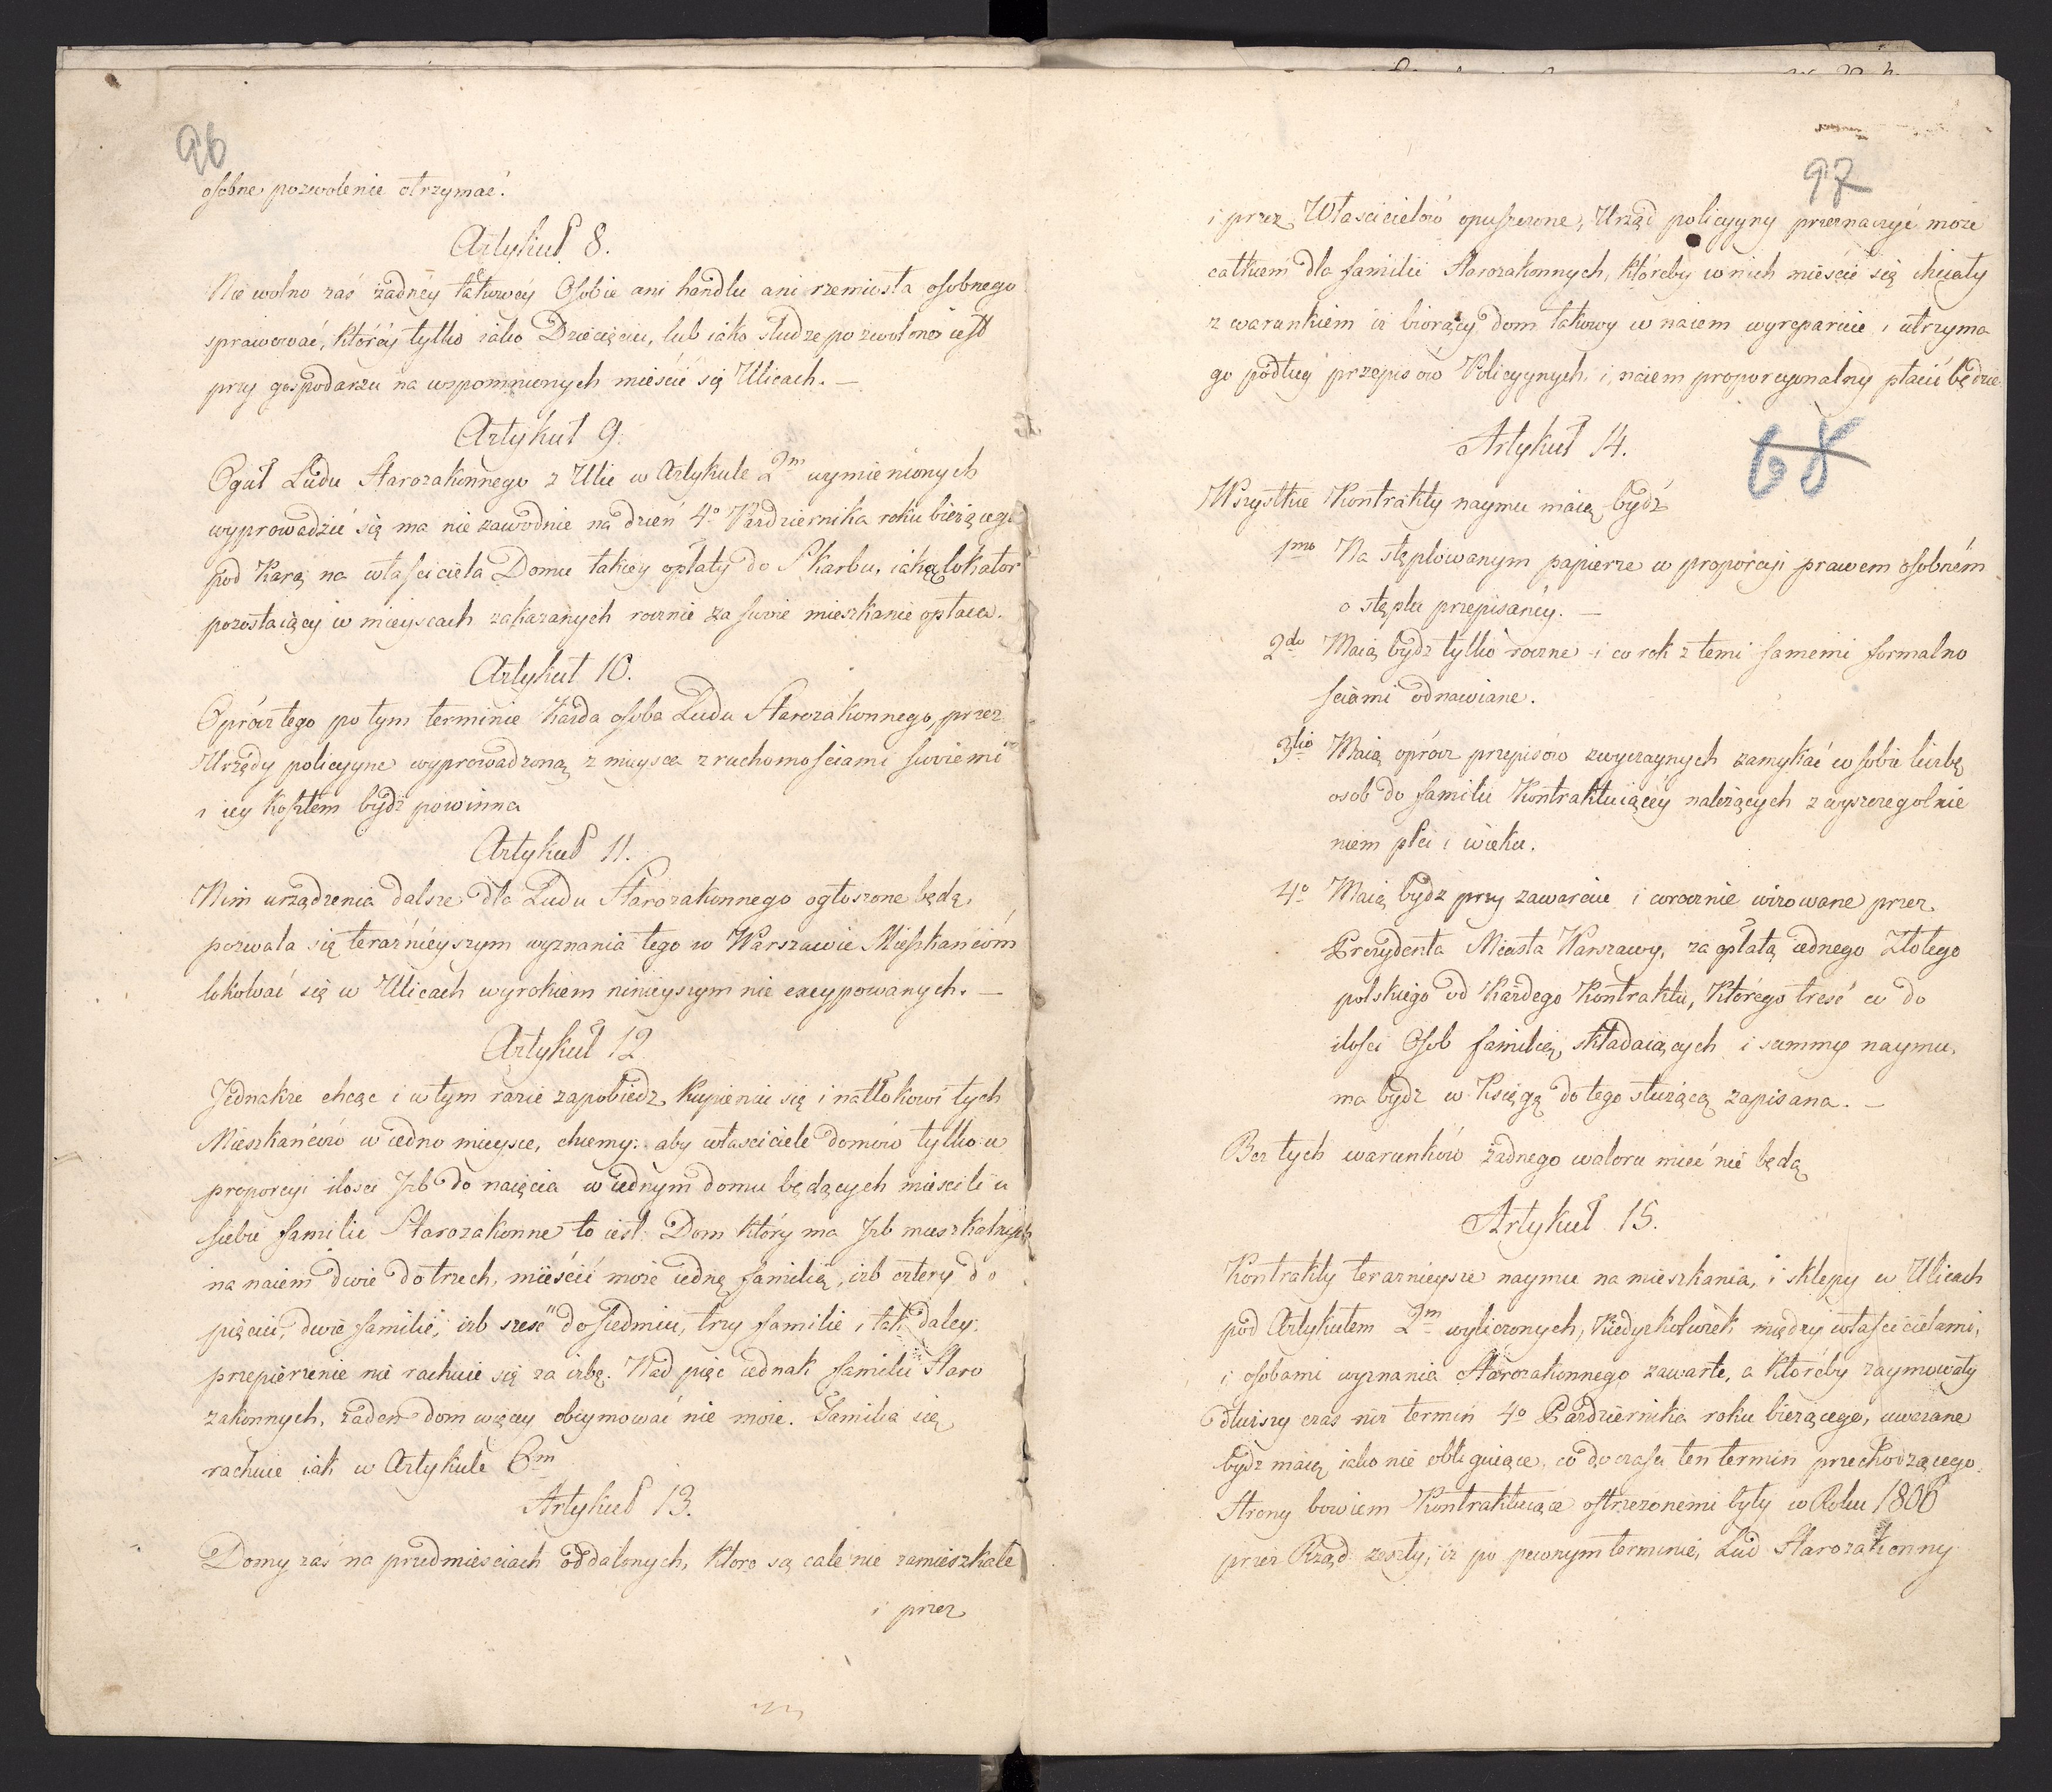 96
osobne pozwolenie otrzymać.
Artykuł 8.
Nie wolno zaś żadnéy takowéy Osobie ani handlu ani rzemiosła osobnego
sprawować, któréy tylko iako Dziecięciu, lub iako słudze pozwolono iest
przy gospodarzu na wspomnionych mieścić się Ulicach. —
Artykuł 9.
Ogół Ludu Starozakonnego z Ulic w Artykule 2m wymienionych
wyprowadzić się ma niezawodnie na dzień 4o Października roku bieżącego
pod Karą na właściciela Domu takiey opłaty do Skarbu, iaką lokator
pozostaiący w mieyscach zakazanych rocznie za swoie mieszkanie opłaca.
Artykuł 10.
Oprócz tego po tym terminie Każda osoba Ludu Starozakonnego, przez
Urzędy policyyne wyprowadzoną z mieysca z ruchomościami swoiemi
i iey kosztem bydź powinna
Artykuł 11.
Nim urządzenia dalsze dla Ludu Starozakonnego ogłoszone będą,
pozwala się teraźnieyszym wyznania tego w Warszawie Mieszkańcóm
lokować się w Ulicach wyrokiem ninieyszym nie excypowanych. —
Artykuł 12
Jednakże chcąc i w tym razie zapobiedz kupieniu się i natłokowi tych
Mieszkańców w iedno mieysce, chcemy: aby właściciele domów tylko w
proporcyi ilości Jzb do naięcia w iednym domu będących mieścili u
siebie familie Starozakonne to iest: Dom który ma Jzb mieszkalnych
na naiem dwie do trzech, mieścić może iedną familią, izb cztery do
pięciu, dwie familie, izb sześć do siedmiu, trzy familie i tak daley.
przepierzenie nie rachuie się za izbę. Nad pięć iednak familii Staro
zakonnych, żaden dom więcey obeymować nie może. Familia się
rachuie iak w Artykule 6m
Artykuł 13.
Domy zaś na przedmieściach oddalonych, które są całe nie zamieszkałe
i przez
97
i przez Właścicielów opuszczone, Urząd policyyny przeznaczyć może
całkiem dla familii Starozakonnych, któreby w nich mieścić się chciały
z warunkiem iż biorący dom takowy w naiem wyreparuie i utrzyma
go podług przepisów Policyynych i naiem proporcyonalny płacić będzie
Artykuł 14.
68
Wszystkie Kontrakty naymu maią bydź
1mo Na stęplowanym papierze w proporcyi prawem osobném
o stęplu przepisanéy. —
2do Maią bydź tylko roczne i co rok z temi samemi formalno
ściami odnawiane.
3tio Maią oprócz przepisów zwyczaynych zamykać w sobie liczbę
osob do familii Kontraktuiącéy należących z wyszczegolnie
niem płci i wieku.
4o Maią bydź przy zawarciu i corocznie wizowane przez
Prezydenta Miasta Warszawy, za opłatą iednego Złotego
polskiego od Każdego Kontraktu, Którego treść co do
ilości Osob familią składaiących i summy naymu,
ma bydź w Księgę do tego służącą zapisana. —
Bez tych warunków żadnego waloru mieć nie będą
Artykuł 15.
Kontrakty teraznieysze naymu na mieszkania, i sklepy w Ulicach
pod Artykułem 2m wyliczonych, Kiedyżkolwiek między właścicielami,
i osobami wyznania Starozakonnego zawarte, a któréby zaymowały
dłuższy czas niż termin 4o Października roku bieżącego, uważane
bydź maią iako nie obliguiące, co do czasu ten termin przechodzącego.
Strony bowiem Kontraktuiące ostrzeżonemi były w Roku 1806
przez Rząd zeszły, iż po pewnym terminie, Lud Starozakonny